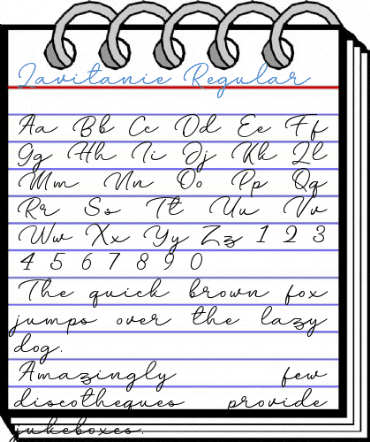 Lavitanie Regular
Aa Bb Cc Dd Ee Ff
Gg Hh Ii Jj Kk Ll
Mm Nn Oo Pp Qq
Rr Ss Tt Uu Vv
Ww Xx Yy Zz 1 2 3
4 5 6 7 8 9 0
The quick brown fox
jumps over the lazy
dog.
Amazingly few
discotheques provide
jukeboxes.